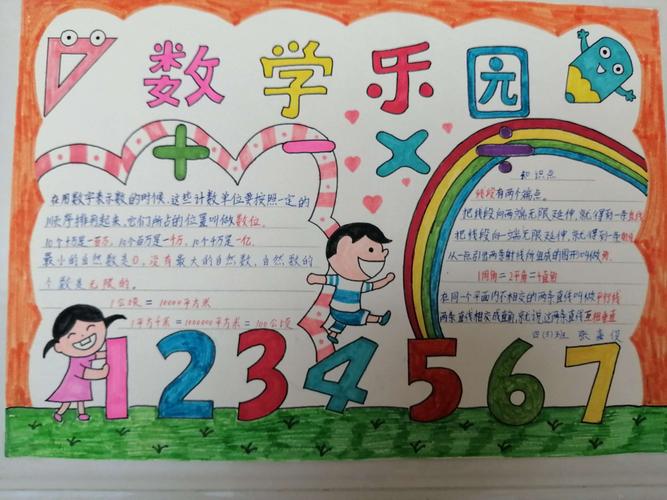 数学乐园
+ − × ÷
在用数字表示数的时候,这些计数单位要按照一定的
顺序排列起来,它们所占的位置叫做数位。
10个十万是一百万,10个百万是一千万,10个千万是一亿。
最小的自然数是0,没有最大的自然数,自然数的
个数是无限的。
1公顷=10000平方米
1平方千米=1000000平方米=100公顷
知识点
线段有两个端点。
把线段向两端无限延伸,就得到一条直线
把线段向一端无限延伸,就得到一条射线
从一点引出两条射线所组成的图形叫做角。
1周角=2平角=4直角
在同一个平面内不相交的两条直线叫做平行线
两条直线相交成直角,就说这两条直线互相垂直
四(5)班 张
1234567